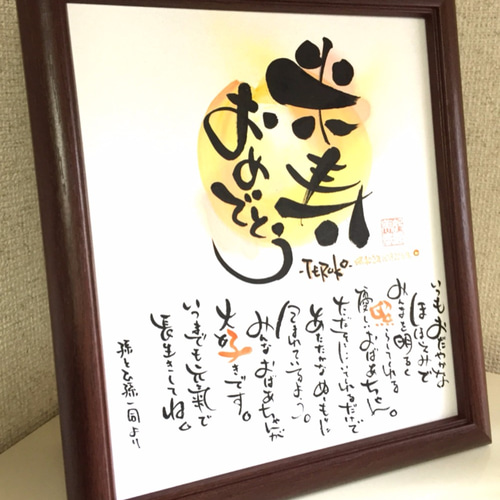 米寿
おめでとう
-TERUKO-
いつもおだやかな
ほほえみで
みんなを明るく
してくれる
優しいおばあちゃん。
ただそこにいてくれるだけで
あたたかなぬくもりに
つつまれているよう。
みんなおばあちゃんが
大好きです。
いつまでも元氣で
長生きしてね。
孫とひ孫一同より